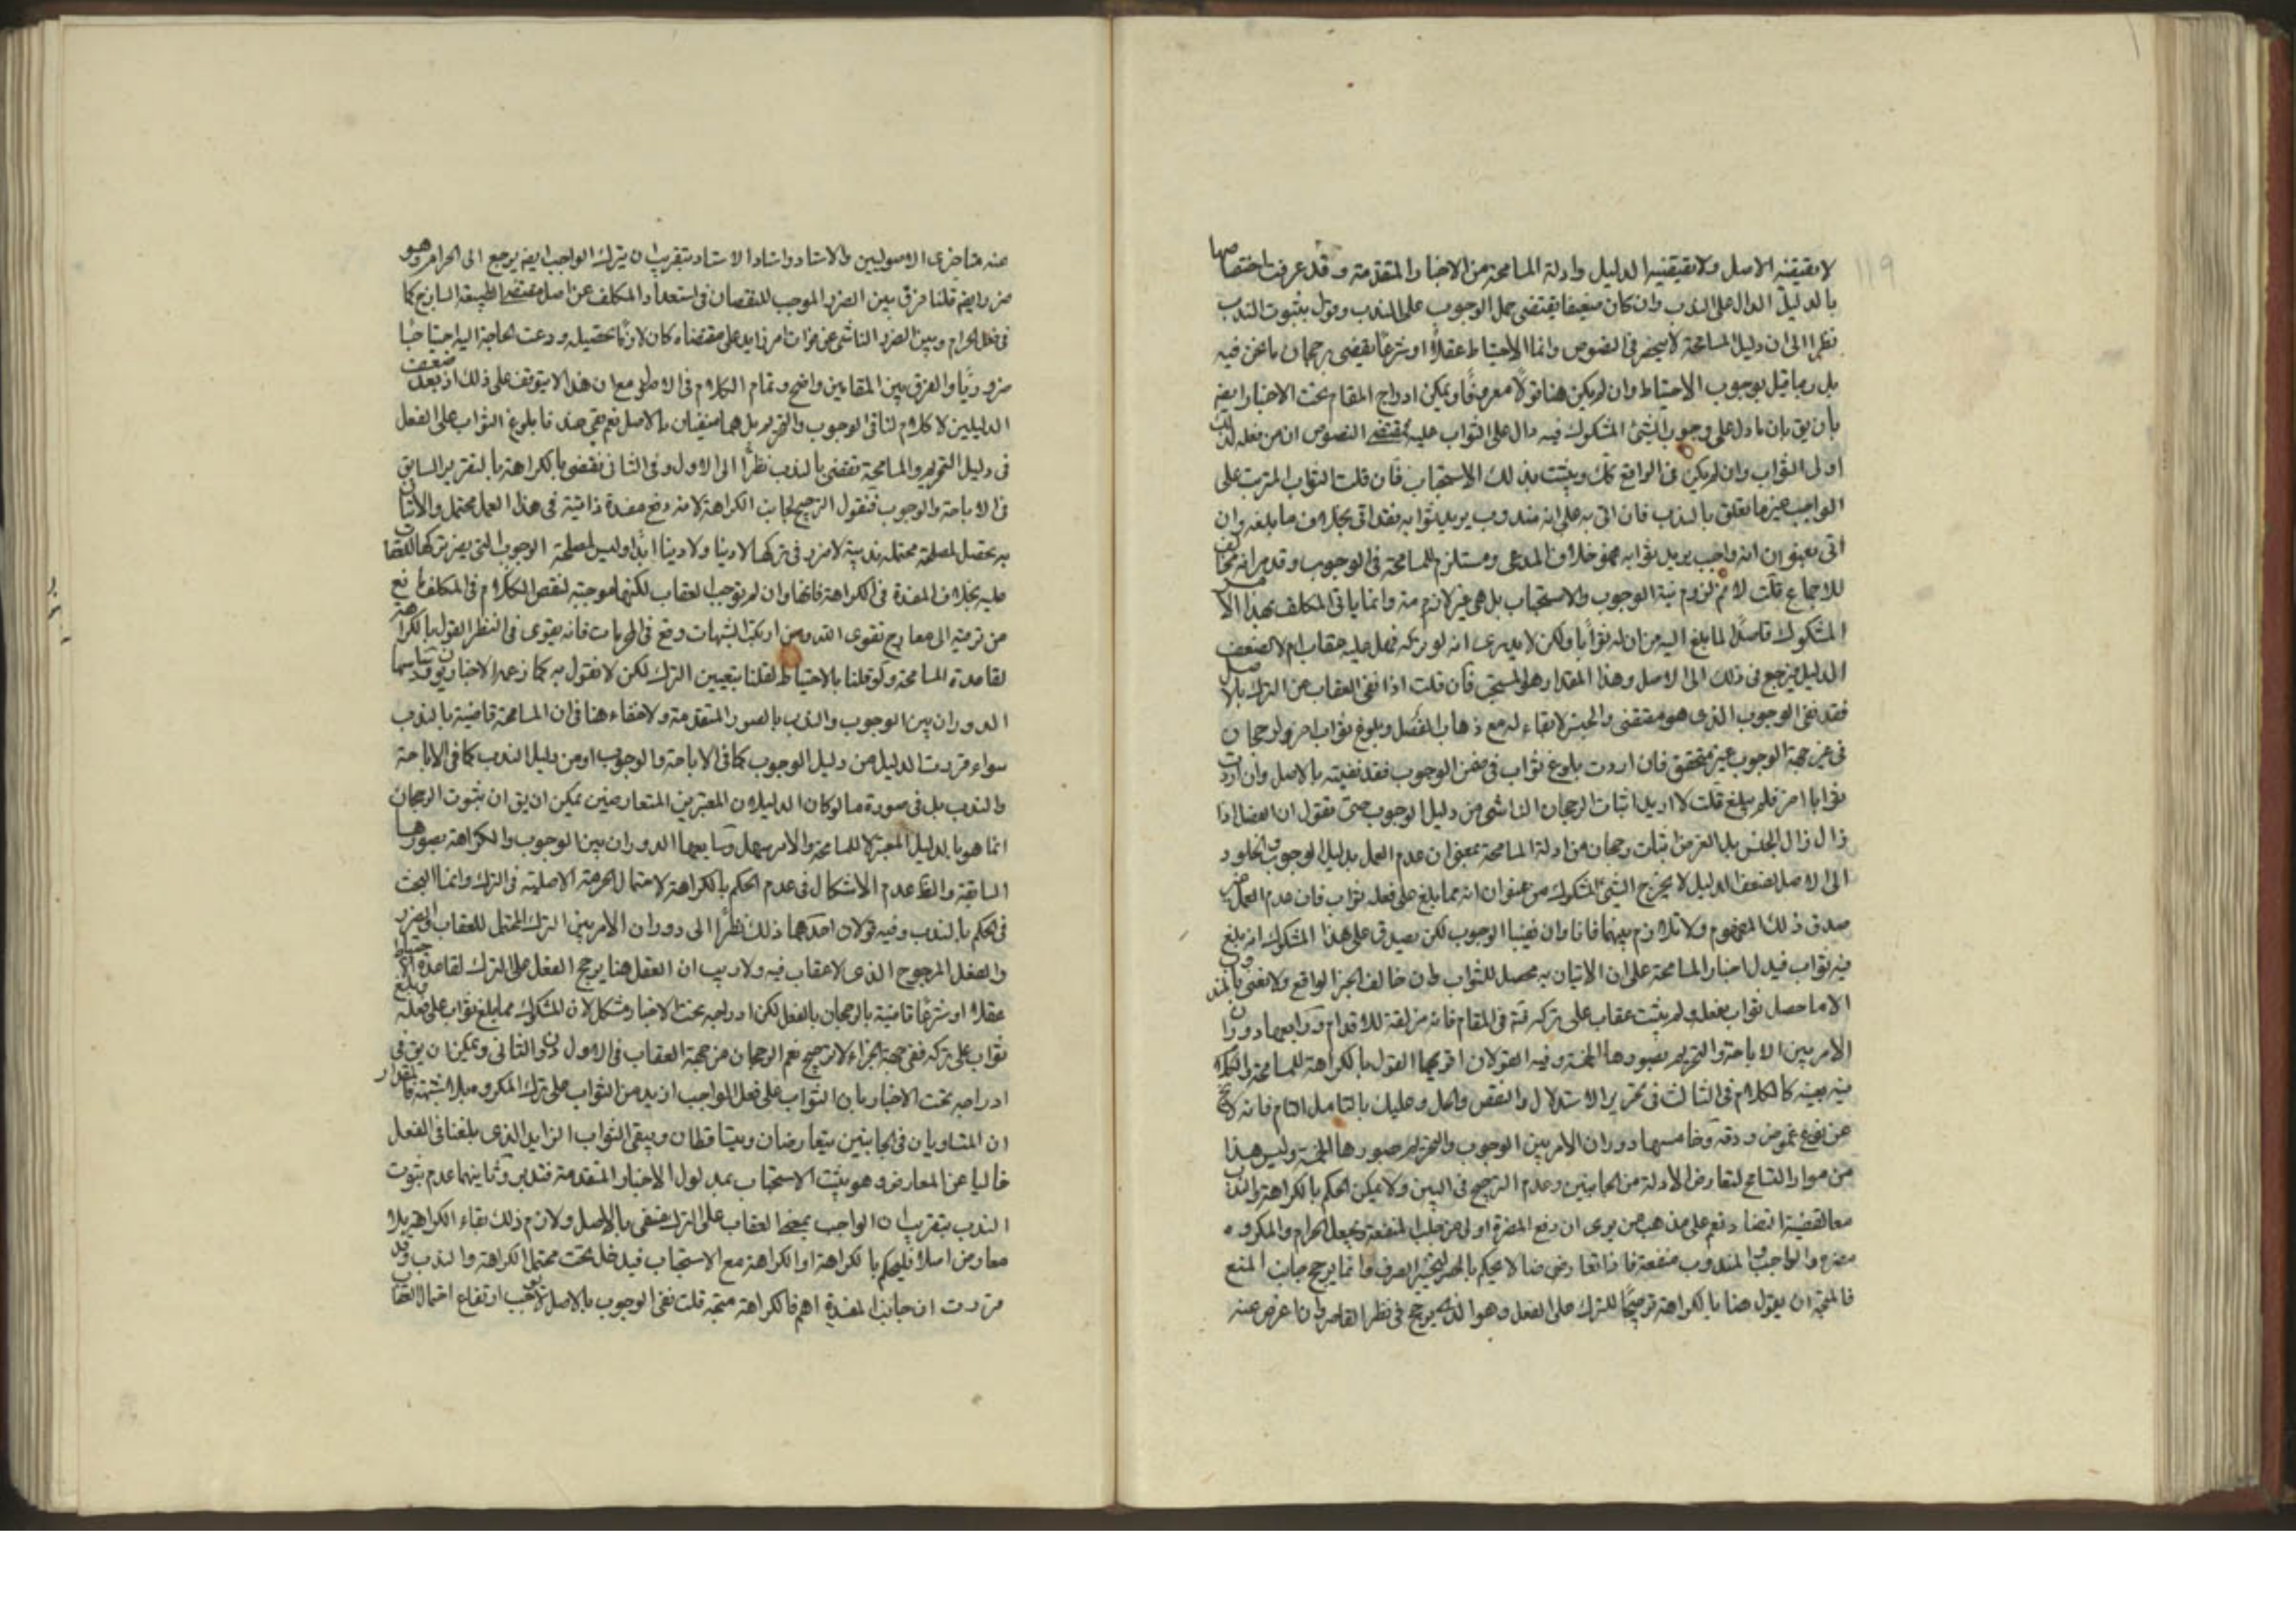 ١١٩
لا يقيقنه الاصل ولا يقيقنيه الدليل وادلة المسامحة من الاخبار المتقدمة وقد عرفت اختصاصها
بالدليل الدال على الندب وان كان ضعيفا يقتضى حمل الوجوب على الندب ونقول بثبوت الندب
نظرا الى ان دليل المسامحة لا ينحصر فى النصوص وانما الاحتياط عقلاً او شرعاً يقضى برجحان ما نحن فيه
بل ربما قيل بوجوب الاحتياط وان لم يكن هنا قولاً معروفاً ويمكن ادراج المقام تحت الاخبار ايضا
بان يق بان ما دل على وجوب الشئ المشكوك فيه دال على الثواب عليه بمقتضى النصوص ان من فعله لذلك
اوتى الثواب وان لم يكن فى الواقع كك ويثبت بذلك الاستحباب فان قلت الثواب المترتب على
الواجب غير ما تعلق بالندب فان اتى به على انه مندوب يريد ثوابه فقد اتى بخلاف ما بلغه وان
اتى بعنوان انه واجب يريد ثوابه فهو خلاف المدعى ومستلزم للمسامحة فى الوجوب وقد مر انه مخالف
للاجماع قلت لا نم لزوم نية الوجوب والاستحباب بل هى غير لازمة وانما ياتى المكلف بهذا الامر
المشكوك قاصداً لما بلغ اليه من ان له ثواباً ولكن لا يدرى انه لو تركه فهل عليه عقاب ام لا لضعف
الدليل فيرجع فى ذلك الى الاصل وهذا المقدار هو المستحب فان قلت اذا نفى العقاب عن الترك بالاصل
فقد نفى الوجوب الذى هو مقتضى والجنس لا بقاء له مع ذهاب الفصل وبلوغ ثواب اخر ولرجحان
فى غير جهة الوجوب غير متحقق فان اردت بلوغ ثواب فى ضمن الوجوب فقد نفيته بالاصل وان اردت
ثوابا اخر فلم يبلغ قلت لا اريد اثبات الرجحان الناشى من دليل الوجوب حتى تقول ان الفصل اذا
زال زال الجنس بل الغرض اثبات رجحان من ادلة المسامحة بمعنى ان عدم العمل بدليل الوجوب والخلود
الى الاصل لضعف الدليل لا يخرج الشئ المشكوك من عنوان انه مما بلغ على فعله ثواب فان عدم العمل غير
صدق ذلك المفهوم ولا تلازم بينهما فانا وان نفينا الوجوب لكن يصدق على هذا المشكوك انه بلغ
فيه ثواب فيدل اخبار المسامحة على ان الاتيان به محصل للثواب وان خالف الخبر الواقع ولا نعنى بالمندوب
الا ما حصل ثواب بفعله ولم يثبت عقاب على تركه فتد فى المقام فانه مزلقة للاقدام ورابعها دوران
الامر بين الاباحة والتحريم بصورها الخمسة وفيه القولان اقويهما القول بالكراهة للمسامحة والكلام
فيه بعينه كالكلام فى الثالث فى تحرير الاستدلال والنقض والحل وعليك بالتامل التام فانه لا يخ
عن نوع غموض ودقة وخامسها دوران الامر بين الوجوب والتحريم بصورها الخمسة وليس هذا
من موارد التسامح لتعارض الادلة من الجانبين وعدم الترجيح فى البين ولا يمكن الحكم بالكراهة والندب
معا لقضية التضاد نعم على مذهب من يرى ان دفع المضرة اولى من جلب المنفعة ويجعل الحرام والمكروه
مضرة والواجب والمندوب منفعة فاذا تعارضا لا يحكم بالتخيير الصرف وانما يرجح جانب المنع
فالمتجه ان يقول هنا بالكراهة ترجيحاً للترك على الفعل وهو الذى يرجح فى نظر القاصر وان اعرض عنه
عنه متاخرى الاصوليين والاستاد واستاد الاستاد بتقريب ان بترك الواجب ايضا يرجع الى الحرام وهو
ضرر ايضا قلنا فرق بين الضرر الموجب للنقصان فى استعداد المكلف عن اصل مقتضى الطبيعة السانح كما
فى فعل الحرام وبين الضرر الناشى عن فوات امر زايد على مقتضاه كان لازماً تحصيله ودعت الحاجة اليه احتياجا
ضرورياً والفرق بين المقامين واضح وتمام الكلام فى الاصول مع ان هذا لا يتوقف على ذلك اذ بعد ضعف
الدليلين لا كلام لنا فى الوجوب والتحريم بل هما منفيان بالاصل نعم حتى هنا بلوغ الثواب على الفعل
فى دليل التحريم والمسامحة تقتضى بالندب نظراً الى الاول وفى الثانى نقتضى بالكراهة بالتقرير السابق
فى الاباحة والوجوب فنقول الترجيح لجانب الكراهة لانه دفع مفسدة ذاتية فى هذا العمل محتمل والاتيان
به تحصيل لمصلحة محتملة ندبية لا ضرر فى تركها لا دينا ولا دنيا ابدا وليس لمصلحة الوجوب التى يضر تركها للعقاب
عليه بخلاف المفسدة فى الكراهة فانها وان لم توجب العقاب لكنها موجبة لنقص الكلام فى المكلف مانع
من ترقيه الى معارج تقوى الله ومن ارتكب الشبهات وقع فى المحرمات فانه يقوى فى النظر القول بالكراهة
لقاعدة المسامحة ولو قلنا بالاحتياط لقلنا بتعيين الترك لكن لا نقول به كما زعمه الاخباريون وسادسها
الدوران بين الوجوب والندب بالصور المتقدمة ولا خفاء هنا فى ان المسامحة قاضية بالندب
سواء قررت الدليل من دليل الوجوب كما فى الاباحة والوجوب او من دليل الندب كما فى الاباحة
والندب بل فى صورة ما لو كان الدليلان المعتبرين المتعارضين يمكن ان يق ان ثبوت الرجحان
انما هو بالدليل المعتبر لا للمسامحة والامر سهل وسابعها الدوران بين الوجوب والكراهة بصورها
السابقة والظ عدم الاشكال فى عدم الحكم بالكراهة لاحتمال الحرمة الاصلية فى الترك وانما البحث
فى الحكم بالندب وفيه قولان احدهما ذلك نظراً الى دوران الامر بين الترك المحتمل للعقاب والضرر
والفعل المرجوح الذى لا عقاب فيه ولا ريب ان العقل هنا يرجح الفعل على الترك لقاعدة الاحتياط
عقلا او شرعاً قاضية بالرجحان بالفعل لكن ادراجه تحت الاخبار مشكل لان المشكوك مما بلغ ثواب على فعله وبلغ
ثواب على تركه ففى جهة الجزاء لا ترجيح نعم الرجحان من جهة العقاب فى الاول دون الثانى ويمكن ان يق فى
ادراجه تحت الاخبار بان الثواب على فعل الواجب ازيد من الثواب على ترك المكروه بلا شبهة فالمقدار
ان المتساويان فى الجانبين يتعارضان ويتساقطان ويبقى الثواب الزايد الذى بلغنا فى الفعل
خاليا عن المعارض وهو يثبت الاستحباب بمدلول الاخبار المتقدمة فتدبر وثانيهما عدم ثبوت
الندب بتقريب ان الواجب بمعنى العقاب على الترك منفى بالاصل ولازم ذلك بقاء الكراهة بلا
معارض اصلا فليحكم بالكراهة او الكراهة مع الاستحباب فيدخل تحت محتمل الكراهة والندب وقد
قررت ان جانب المفسدة اهم فالكراهة متجهة قلت نفى الوجوب بالاصل لا يوجب ارتفاع احتمال العقاب